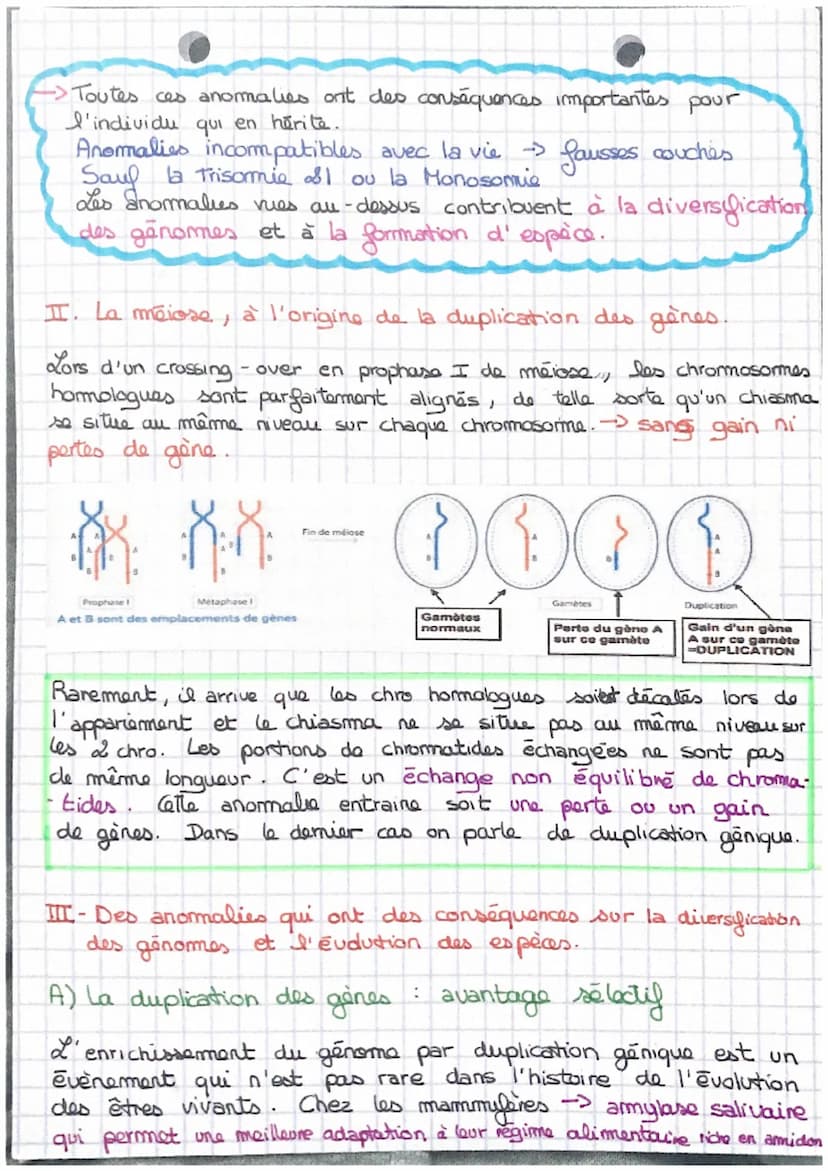 -> Toutes ces anomalies ont des conséquences importantes pour
l'individu qui en hérite.
Anomalies incompatibles avec la vie -> fausses couches
Sauf la Trisomie 21 ou la Monosomie
Les anomalies vues au-dessus contribuent à la diversification
des génomes et à la formation d'espèce.
II. La méiose, à l'origine de la duplication des gènes.
Lors d'un crossing-over en prophase I de méiose, les chromosomes
homologues sont parfaitement alignés, de telle sorte qu'un chiasma
se situe au même niveau sur chaque chromosome. -> sans gain ni
pertes de gène.
A A A A
B B B B
Prophase I
A A A A
B B B B
Métaphase I
Fin de méiose
A
B
A
B
B
A
A
B
Gamètes
Duplication
A et B sont des emplacements de gènes
Gamètes
normaux
Perte du gène A
sur ce gamète
Gain d'un gène
A sur ce gamète
=DUPLICATION
Rarement, il arrive que les chro homologues soient décalés lors de
l'appariement et le chiasma ne se situe pas au même niveau sur
les 2 chro. Les portions de chromatides échangées ne sont pas
de même longueur. C'est un échange non équilibré de chroma-
-tides. Cette anomalie entraine soit une perte ou un gain
de gènes. Dans le dernier cas on parle de duplication génique.
III - Des anomalies qui ont des conséquences sur la diversification
des génomes et l'évolution des espèces.
A) La duplication des gènes : avantage sélectif
L'enrichissement du génome par duplication génique est un
évènement qui n'est pas rare dans l'histoire de l'évolution
des êtres vivants. Chez les mammifères -> amylase salivaire
qui permet une meilleure adaptation à leur régime alimentaire riche en amidon